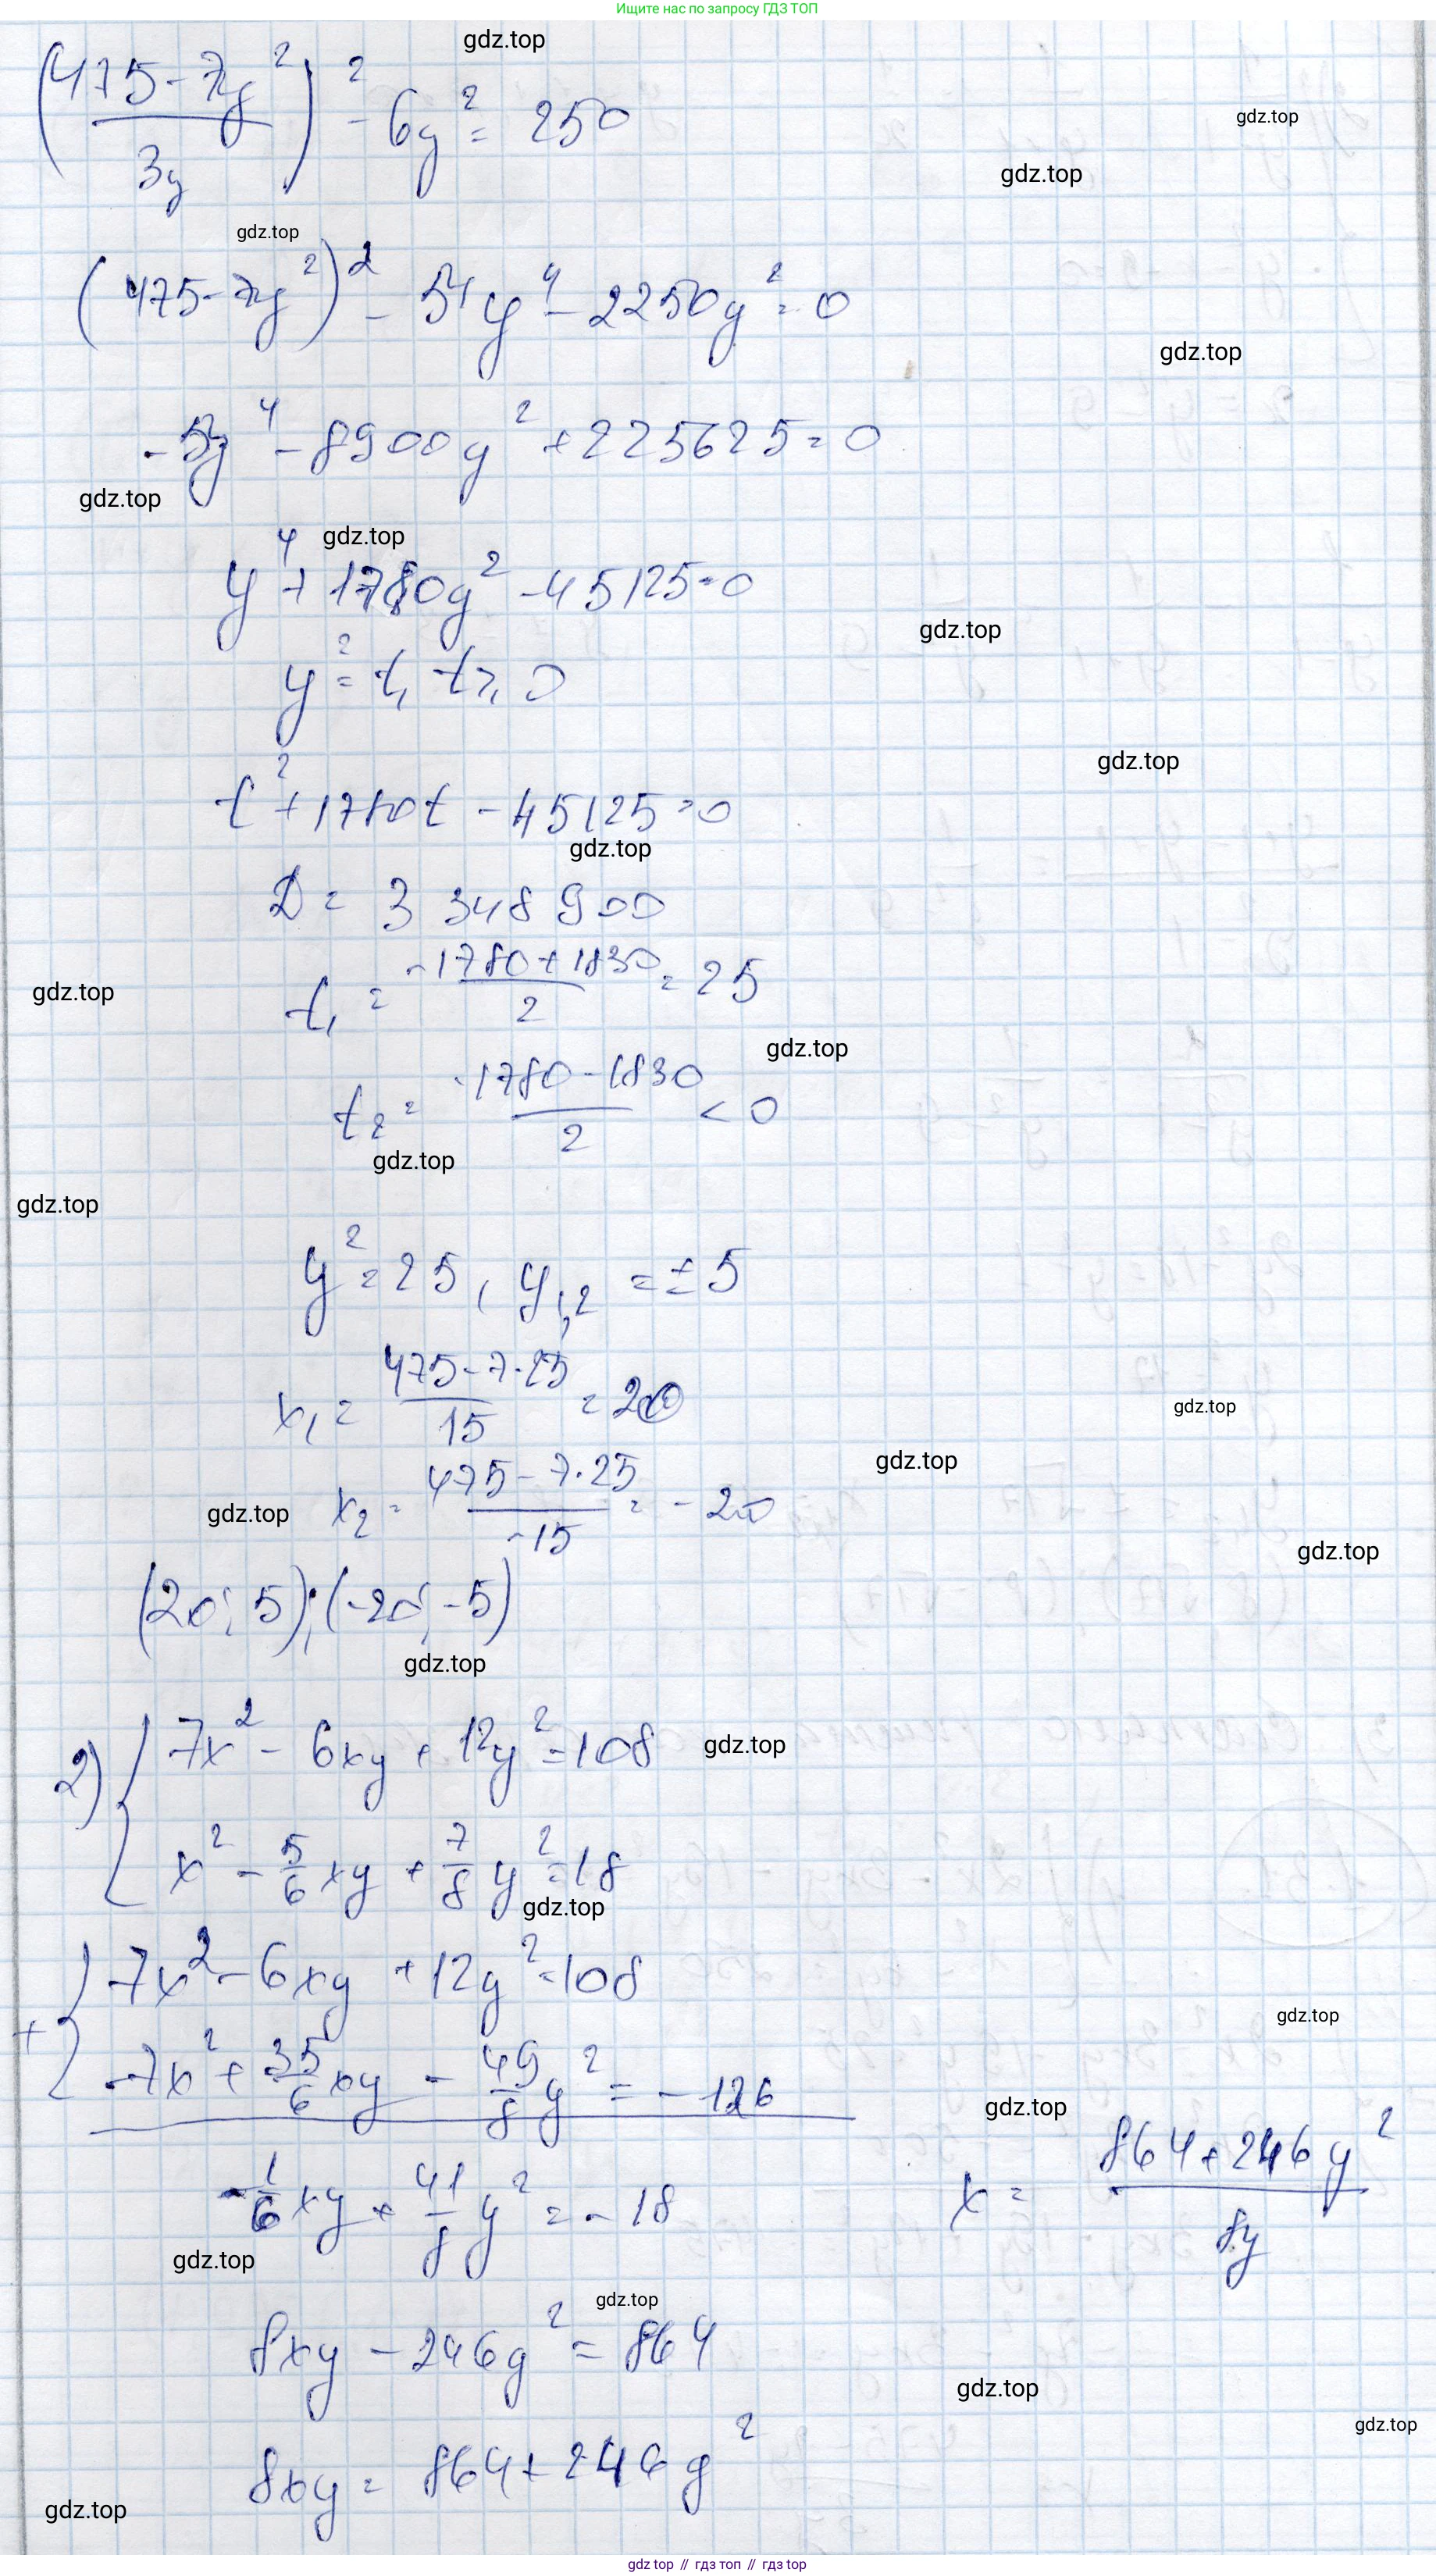 Ищите нас по запросу ГДЗ ТОП
gdz.top
((475 - 7y²)/(3y))² - 6y² = 250
gdz.top
gdz.top
gdz.top
(475 - 7y²)² - 54y⁴ - 2250y² = 0
gdz.top
-5y⁴ - 8900y² + 225625 = 0
gdz.top
gdz.top
y⁴ + 1780y² - 45125 = 0
gdz.top
y² = t, t ≥ 0
gdz.top
t² + 1780t - 45125 = 0
gdz.top
D = 3 348 900
t₁ = (-1780 + 1830)/2 = 25
gdz.top
gdz.top
t₂ = (-1780 - 1830)/2 < 0
gdz.top
gdz.top
y² = 25, y₁,₂ = ±5
x₁ = (475 - 7·25)/15 = 20
gdz.top
gdz.top
x₂ = (475 - 7·25)/-15 = -20
gdz.top
gdz.top
(20; 5); (-20; -5)
gdz.top
2) { 7x² - 6xy + 12y² = 108
gdz.top
x² - 5/6 xy + 7/8 y² = 18
gdz.top
+ { 7x² - 6xy + 12y² = 108
gdz.top
-7x² + 35/6 xy - 49/8 y² = -126
gdz.top
-1/6 xy + 41/8 y² = -18
x = (864 + 246y²)/(8y)
gdz.top
gdz.top
8xy - 246y² = 864
gdz.top
gdz.top
8xy = 864 + 246y²
gdz.top
gdz top // гдз топ // гдз top